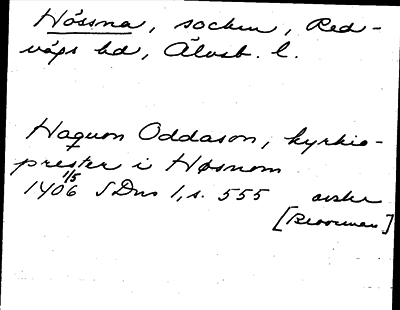 Hössna, socken, Red-
vägs hd, Älvsb. l.
Haquon Oddason, kyrkio-
prester i Høsnom
1406 1/5 SDns 1, s. 555 avskr
[Broocman]